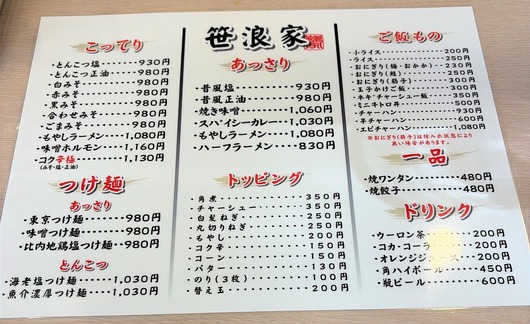 こってり
・とんこつ塩 930円
・とんこつ正油 980円
・白みそ 980円
・赤みそ 980円
・黒みそ 980円
・合わせみそ 980円
・ごまみそ 980円
・もやしラーメン 1,080円
・味噌ホルモン 1,160円
・コク辛極 1,130円
(みそ・塩・正油)
つけ麺
あっさり
・東京つけ麺 980円
・味噌つけ麺 980円
・比内地鶏塩つけ麺 980円
とんこつ
・海老塩つけ麺 1,030円
・魚介濃厚つけ麺 1,030円
笹浪家
あっさり
・昔風塩 930円
・昔風正油 980円
・焼き味噌 1,060円
・スパイシーカレー 1,030円
・もやしラーメン 1,080円
・ハーフラーメン 830円
トッピング
・角煮 350円
・チャーシュー 350円
・白髪ねぎ 250円
・丸切りねぎ 250円
・もやし 200円
・コク辛 150円
・コーン 150円
・バター 130円
・のり(3枚) 100円
・替え玉 200円
ご飯もの
・小ライス 200円
・ライス 250円
・おにぎり(梅・おかか) 230円
・おにぎり(鮭) 250円
・おにぎり(筋子) 300円
・玉子かけご飯 300円
・ネギ・チャーシュー飯 350円
・ミニキトロ丼 500円
・チャーハン 930円
・半チャーハン 600円
・エビチャーハン 1,080円
※おにぎり(筋子)は仕入れ状況により
無い場合があります。
一品
・焼ワンタン 480円
・焼餃子 480円
ドリンク
・ウーロン茶 200円
・コカ・コーラ 200円
・オレンジジュース 200円
・角ハイボール 450円
・瓶ビール 600円